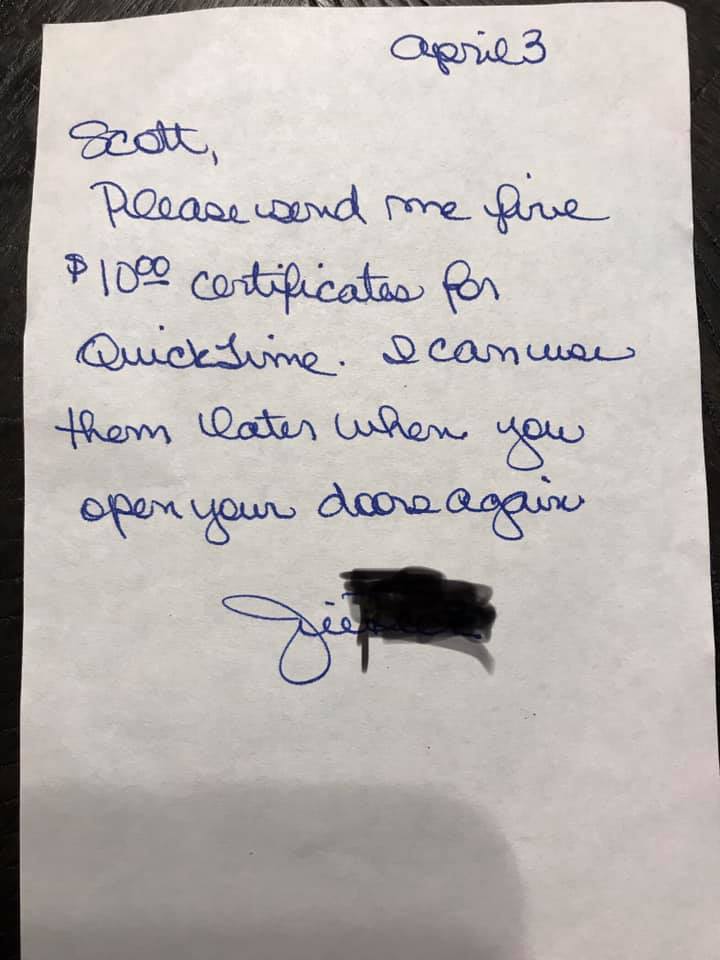 April 3
Scott,
Please send me five
$10.00 certificates for
QuickTime. I can use
them later when you
open your doors again